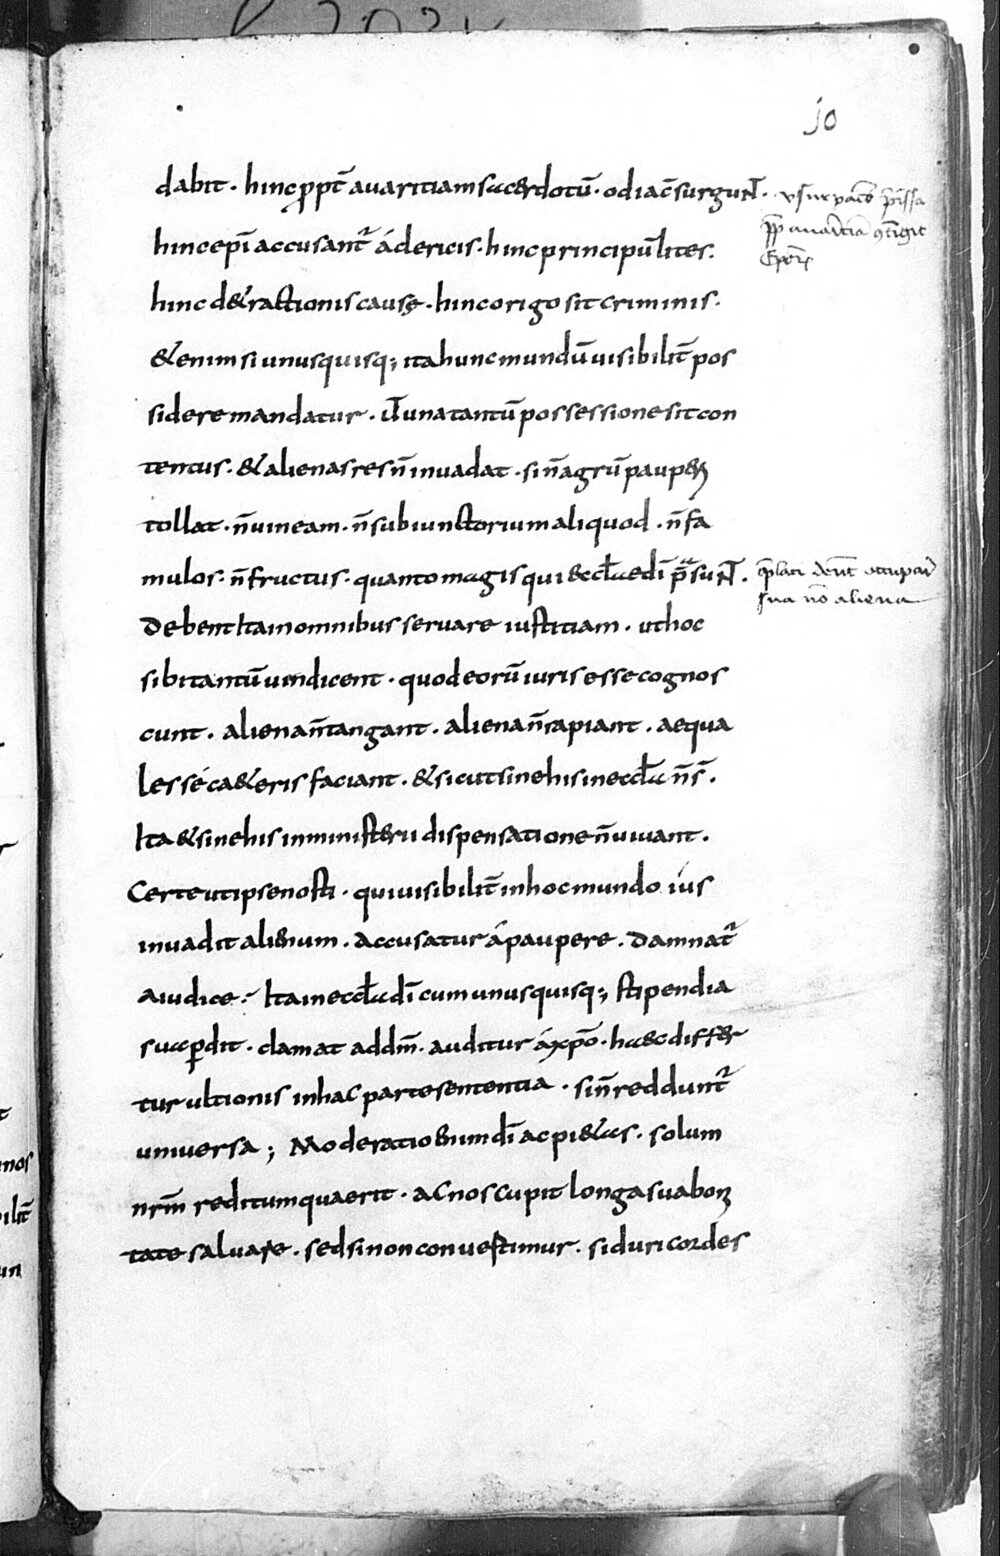 10
dabit · hinc ꝓpt̄ auaritiam sacerdotū · odia c̄surgunt̄ ·
hinc epī accusantᷣ á clericis · hinc principū lites ·
hinc d&ractionis causę · hinc origo sit criminis ·
&enim si unusquisq; ita hunc mundū uisibilit̄ pos
sidere mandatur · ut̄ una tantū possessione sit con
tentus · & alienas res n̄ inuadat · si n̄ agrū pauperꝝ
tollat · n̄ uineam · n̄ subiunctorium aliquod · n̄ fa
mulos · n̄ fructus · quanto magis qui aeccl̄ae dī p̄sunt̄ ·
Debent ita in omnibus seruare iustitiam · ut hoc
sibi tantū uindicent · quod eorū iuris esse cognos
cunt · aliena n̄ tangant · aliena n̄ rapiant · aequa
les sé ca&eris faciant · & sicut sine his in eccl̄a n̄ s̄ ·
Ita & sine his in ministerii dispensatione n̄ uiuant ·
Certe ut ipse nosti · qui uisibilit̄ in hoc mundo iús
inuadit alienum · accusatur á paupere · damnatᷣ
a iudice · Ita in eccl̄a dī cum unusquisq; stipendia
sua ꝑdit · clamat ad dm̄ · auditur á xp̄o · haec differ
tur ultionis in hac parte sententia · si n̄ redduntᷣ
uniuersa ; Moderatio enim dī ac pi&as · solum
nrm̄ reditum quaerit · ac nos cupit longa sua boni
tate saluare · sed si non conuertimur · si duri cordes
prelati debent occupare
sua nō aliena